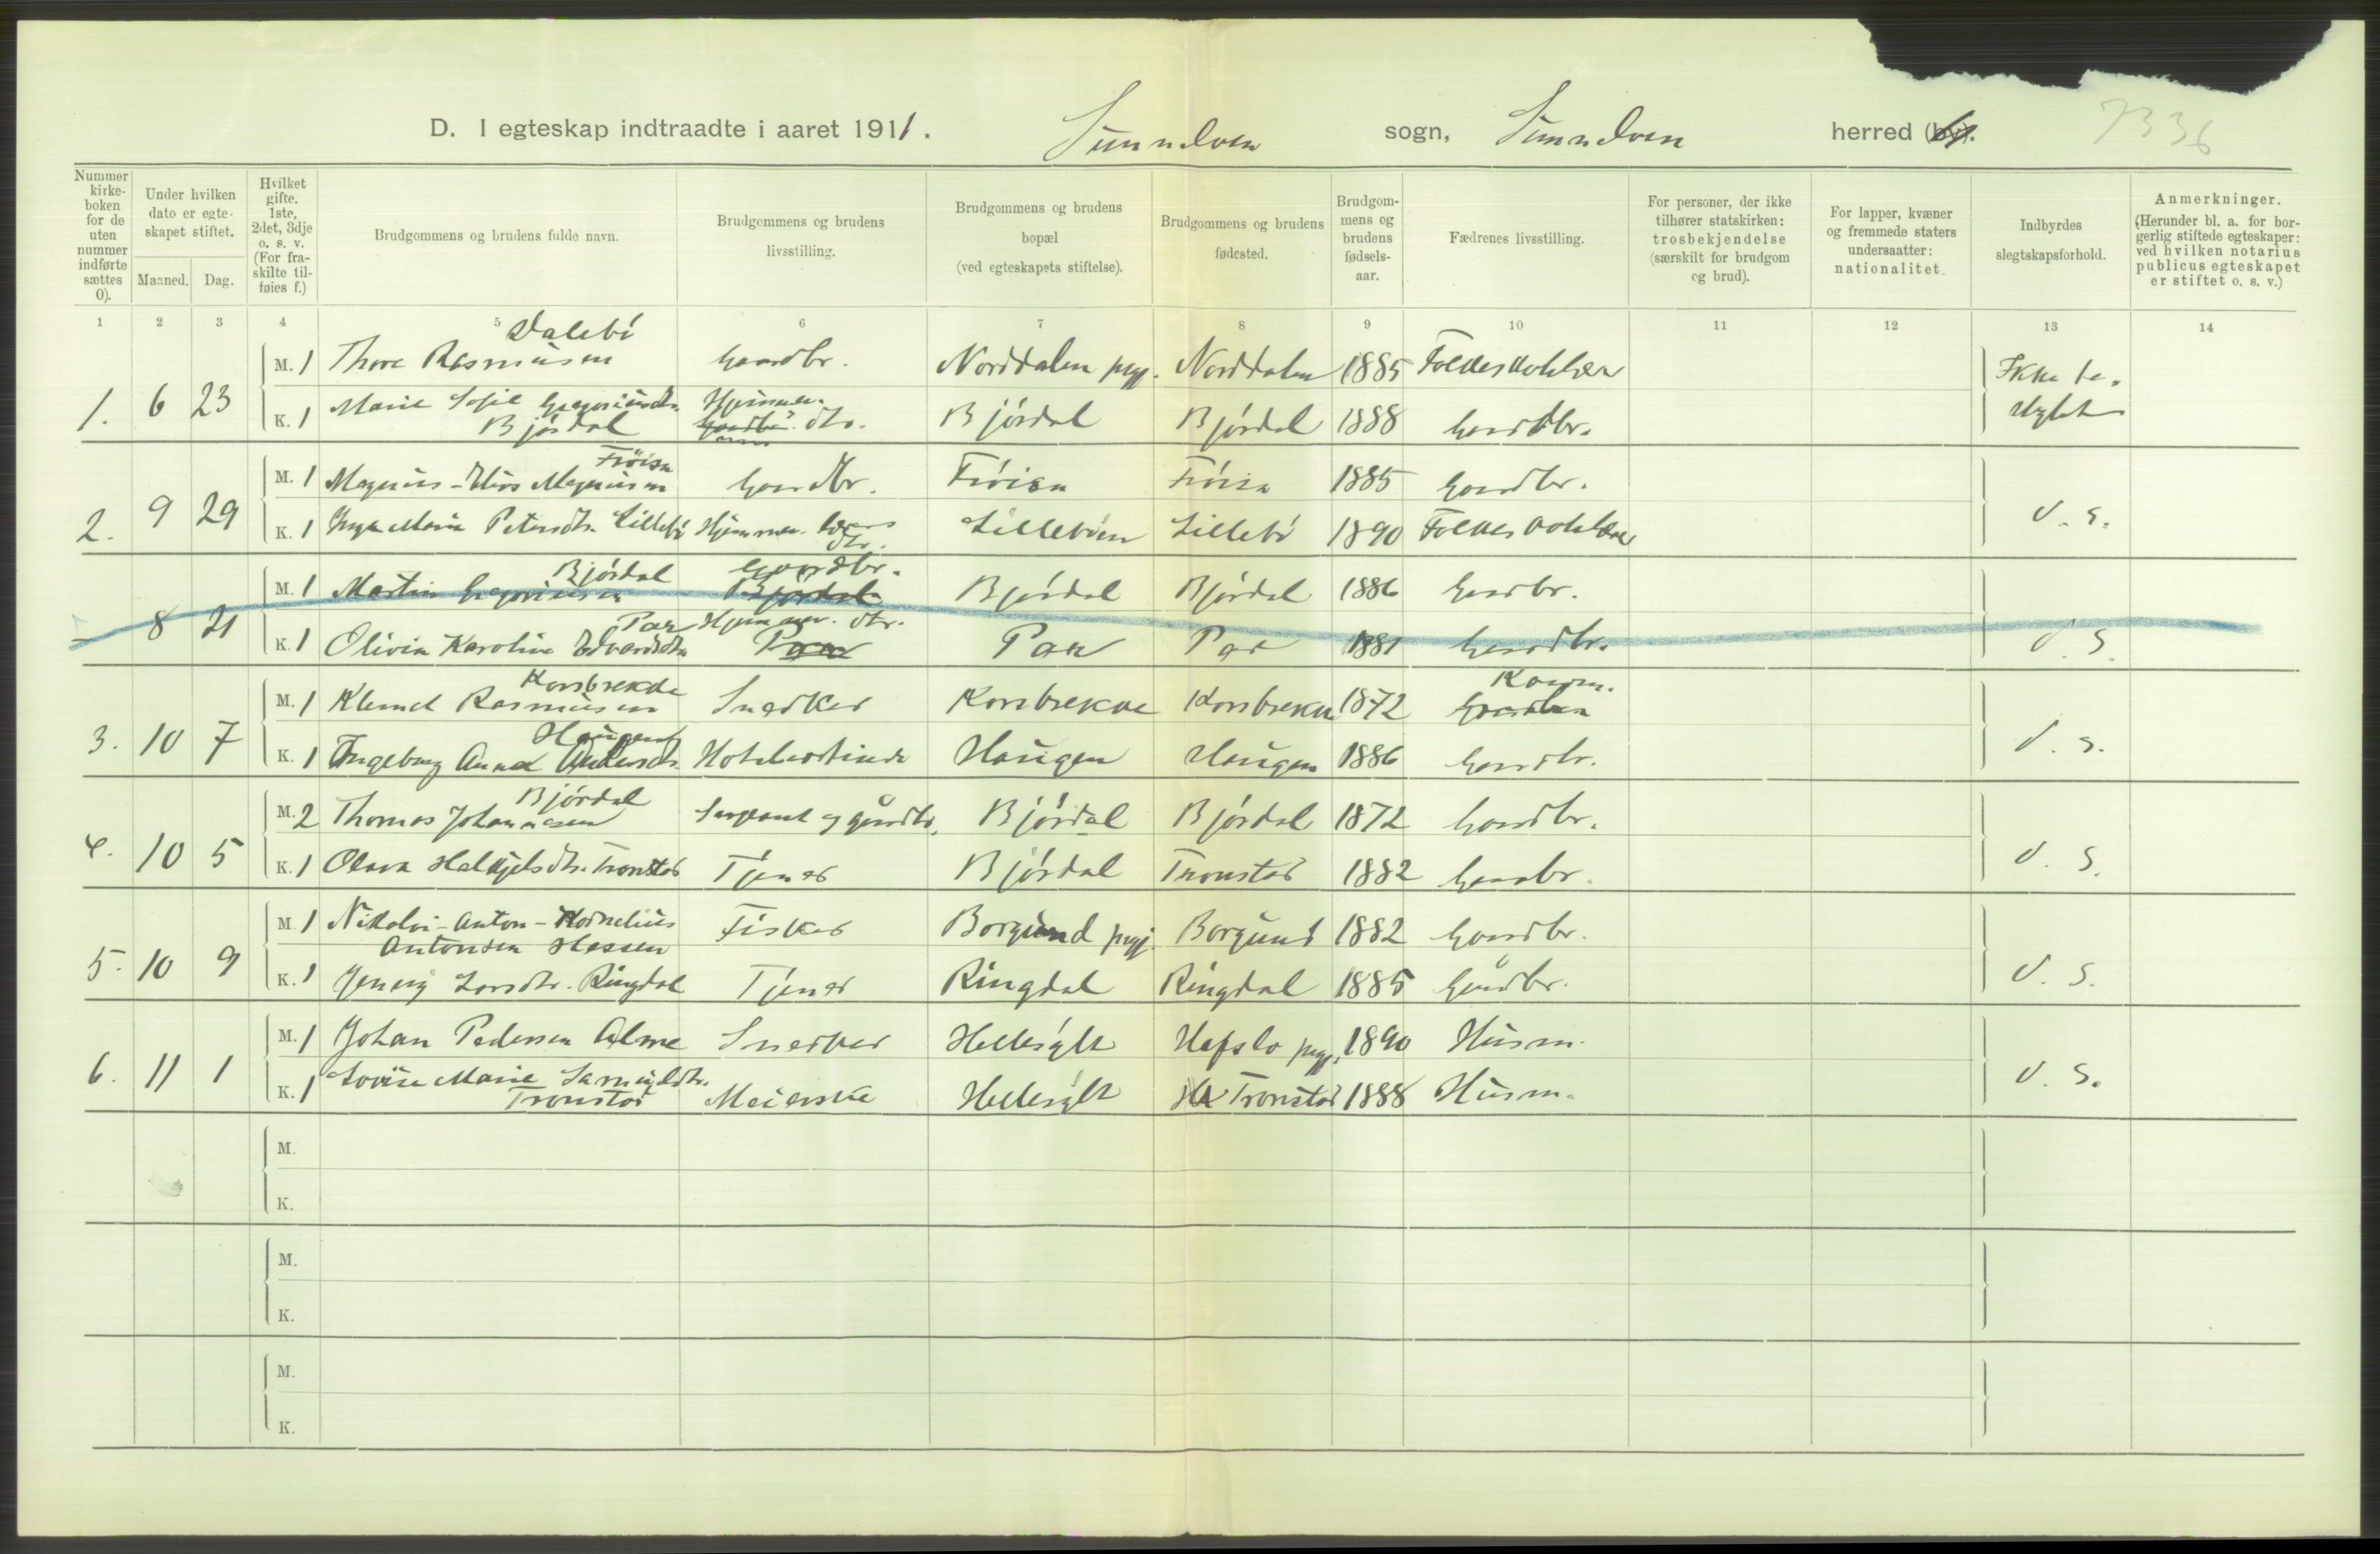 D. I egteskap indtraadte i aaret 1911. Sunnelven sogn, Sunnelven herred (by). 7336
Nummer kirkeboken for de uten nummer indførte sættes 0). Under hvilken dato er egteskapet stiftet. Maaned. Dag. Hvilket gifte. 1ste, 2det, 3dje o. s. v. (For fraskilte tilføies f.) Brudgommens og brudens fulde navn. Brudgommens og brudens livsstilling. Brudgommens og brudens bopæl (ved egteskapets stiftelse). Brudgommens og brudens fødested. Brudgommens og brudens fødselsaar. Fædrenes livsstilling. For personer, der ikke tilhører statskirken: trosbekjendelse (særskilt for brudgom og brud). For lapper, kvæner og fremmede staters undersaatter: nationalitet. Indbyrdes slegtskapsforhold. Anmerkninger. (Herunder bl. a. for borgerlig stiftede egteskaper: ved hvilken notarius publicus egteskapet er stiftet o. s. v.)
1 2 3 4 5 6 7 8 9 10 11 12 13 14
Dalebö
M. 1 Thore Rasmussen Gaardbr. Norddalen pgj. Norddalen 1885 Folkeskolelærer Ikke be-
1. 6 23
K. 1 Marie Sofie Gregoriusdtr. Hjemmev. dtr. Björdal Björdal 1888 Gaardbr. slegtet
Björdal
Fröisa
M. 1 Magnus Magnussen Gaardbr. Fröisa Fröisa 1885 Gaardbr.
2. 9 29 d. s.
K. 1 Inga Marie Petersdtr. Lillebö Hjemmev. dtr. Lilleböen Lillebö 1890 Folkeskolelærer
Björdal Gaardbr.
M. 1 Martin Gregoriussen Björdal Björdal Björdal 1886 Gaardbr.
8 21 d. s.
Par Hjemmev. dtr.
K. 1 Olivia Karoline Edvardsdtr. Par Par Par 1881 Gaardbr.
Korsbrekke Kaarm.
M. 1 Klemet Rasmussen Snedker Korsbrekke Korsbrekke 1872
3. 10 7 d. s.
Haugen
K. 1 Ingeborg Anna Andersdtr. Hotelvertinde Haugen Haugen 1886 Gaardbr.
Björdal
M. 2 Thomas Johannesen Sergeant og gaardbr. Björdal Björdal 1872 Gaardbr.
4. 10 5 d. s.
K. 1 Olava Halkjelsdtr. Tronstad Tjener Björdal Tronstad 1882 Gaardbr.
M. 1 Nikolai-Anton-Kornelius Fisker Borgund pgj. Borgund 1882 Gaardbr.
Antonsen Hessen
5. 10 9 d. s.
K. 1 Jenny Larsdtr. Ringdal Tjener Ringdal Ringdal 1885 Gaardbr.
M. 1 Johan Pedersen Alme Snedker Hellesylt Hafslo pgj. 1890 Husm.
6. 11 1 d. s.
K. 1 Lovise Marie Samueldtr. Meierske Hellesylt Tronstad 1888 Husm.
Tronstad
M.
K.
M.
K.
M.
K.